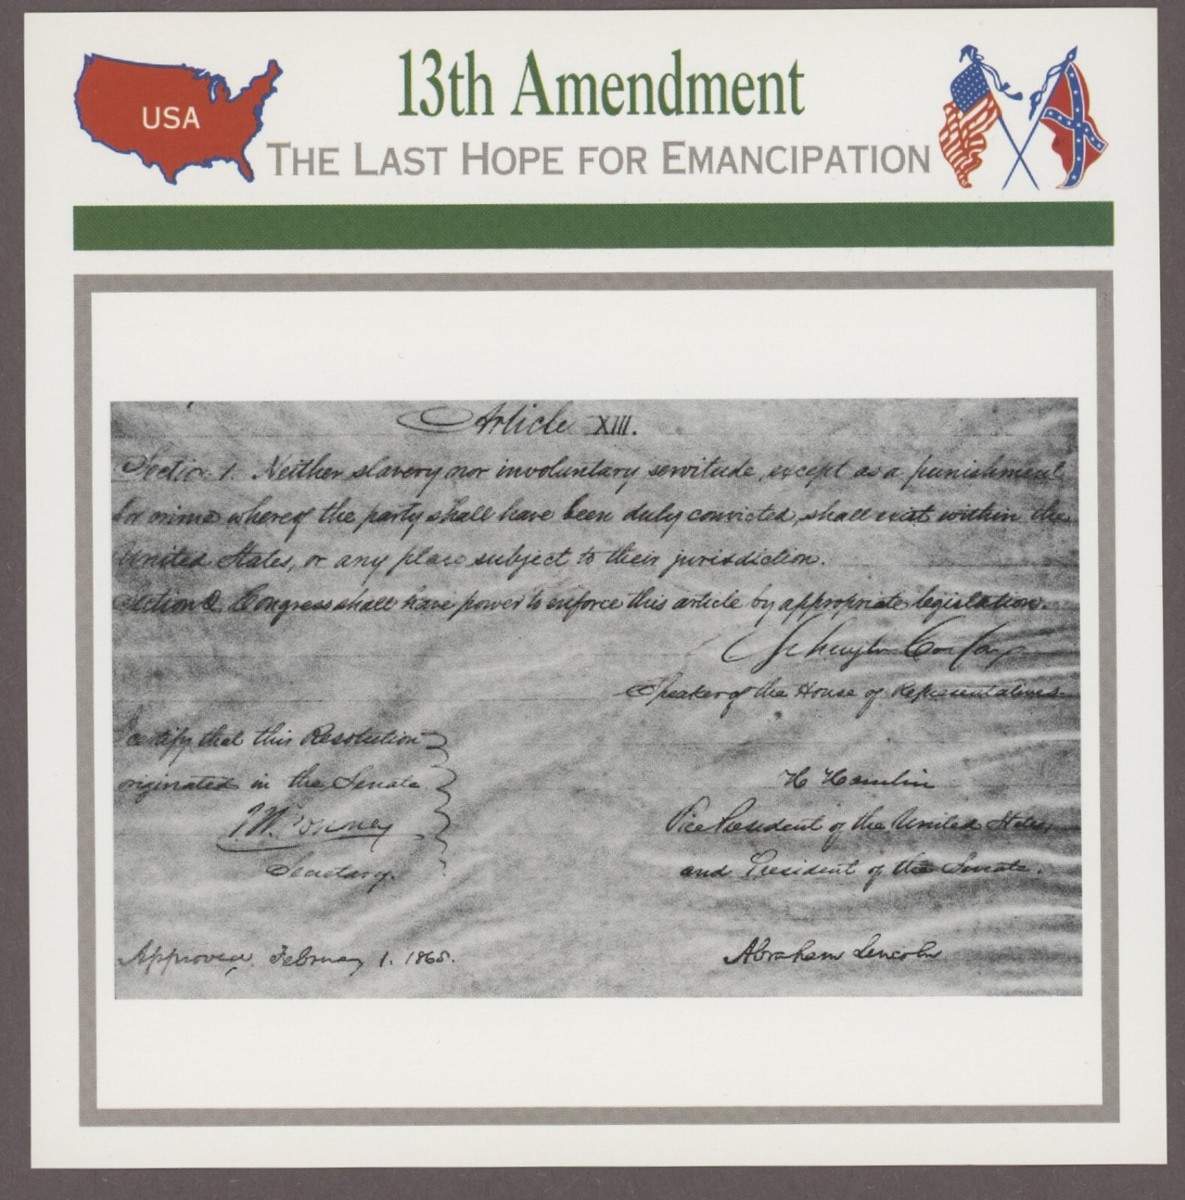 USA
13th Amendment
THE LAST HOPE FOR EMANCIPATION
Article XIII.
Section 1. Neither slavery nor involuntary servitude, except as a punishment
for crime whereof the party shall have been duly convicted, shall exist within the
United States, or any place subject to their jurisdiction.
Section 2. Congress shall have power to enforce this article by appropriate legislation.
Schuyler Colfax
Speaker of the House of Representatives.
I certify that this Resolution
originated in the Senate.
H Hamlin
J.W. Forney
Vice President of the United States,
Secretary.
and President of the Senate.
Approved, February 1. 1865.
Abraham Lincoln